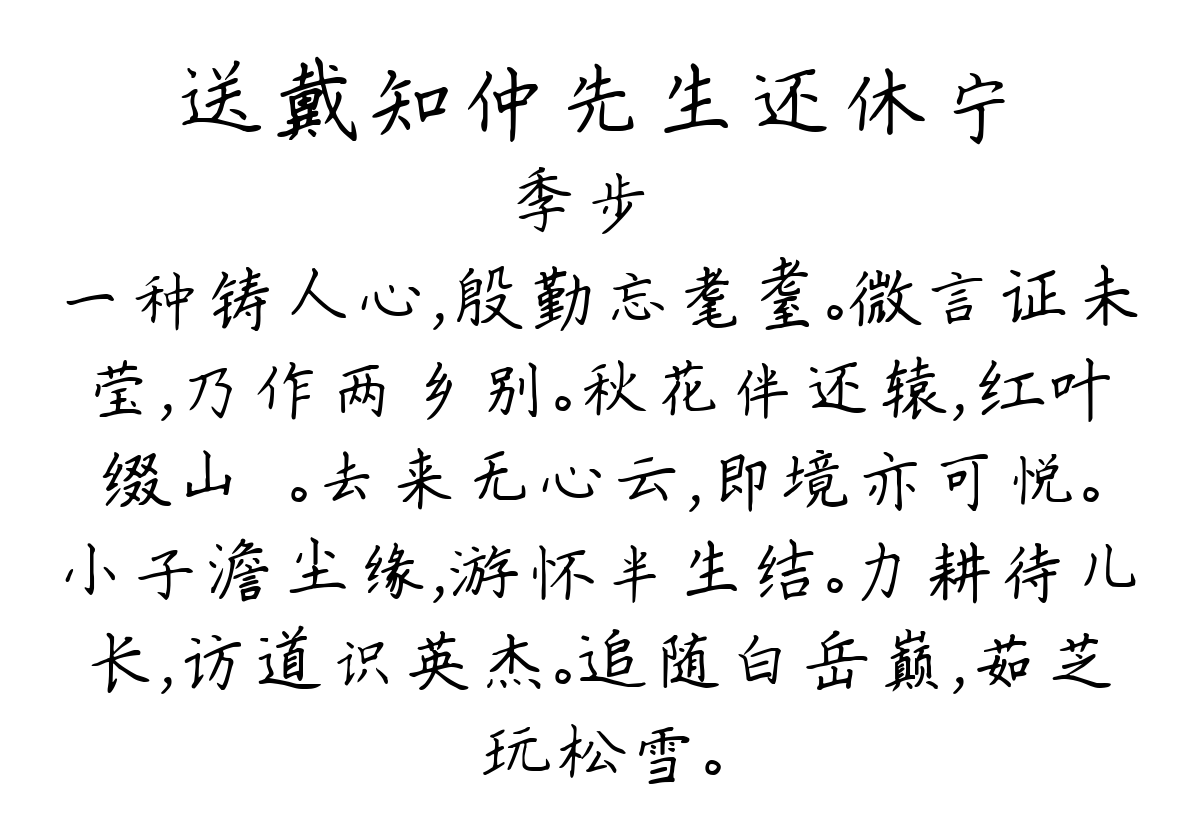 送戴知仲先生还休宁
季步
一种铸人心,殷勤忘耄耋。微言证未
莹,乃作两乡别。秋花伴还辕,红叶
缀山 。去来无心云,即境亦可悦。
小子澹尘缘,游怀半生结。力耕待儿
长,访道识英杰。追随白岳巅,茹芝
玩松雪。